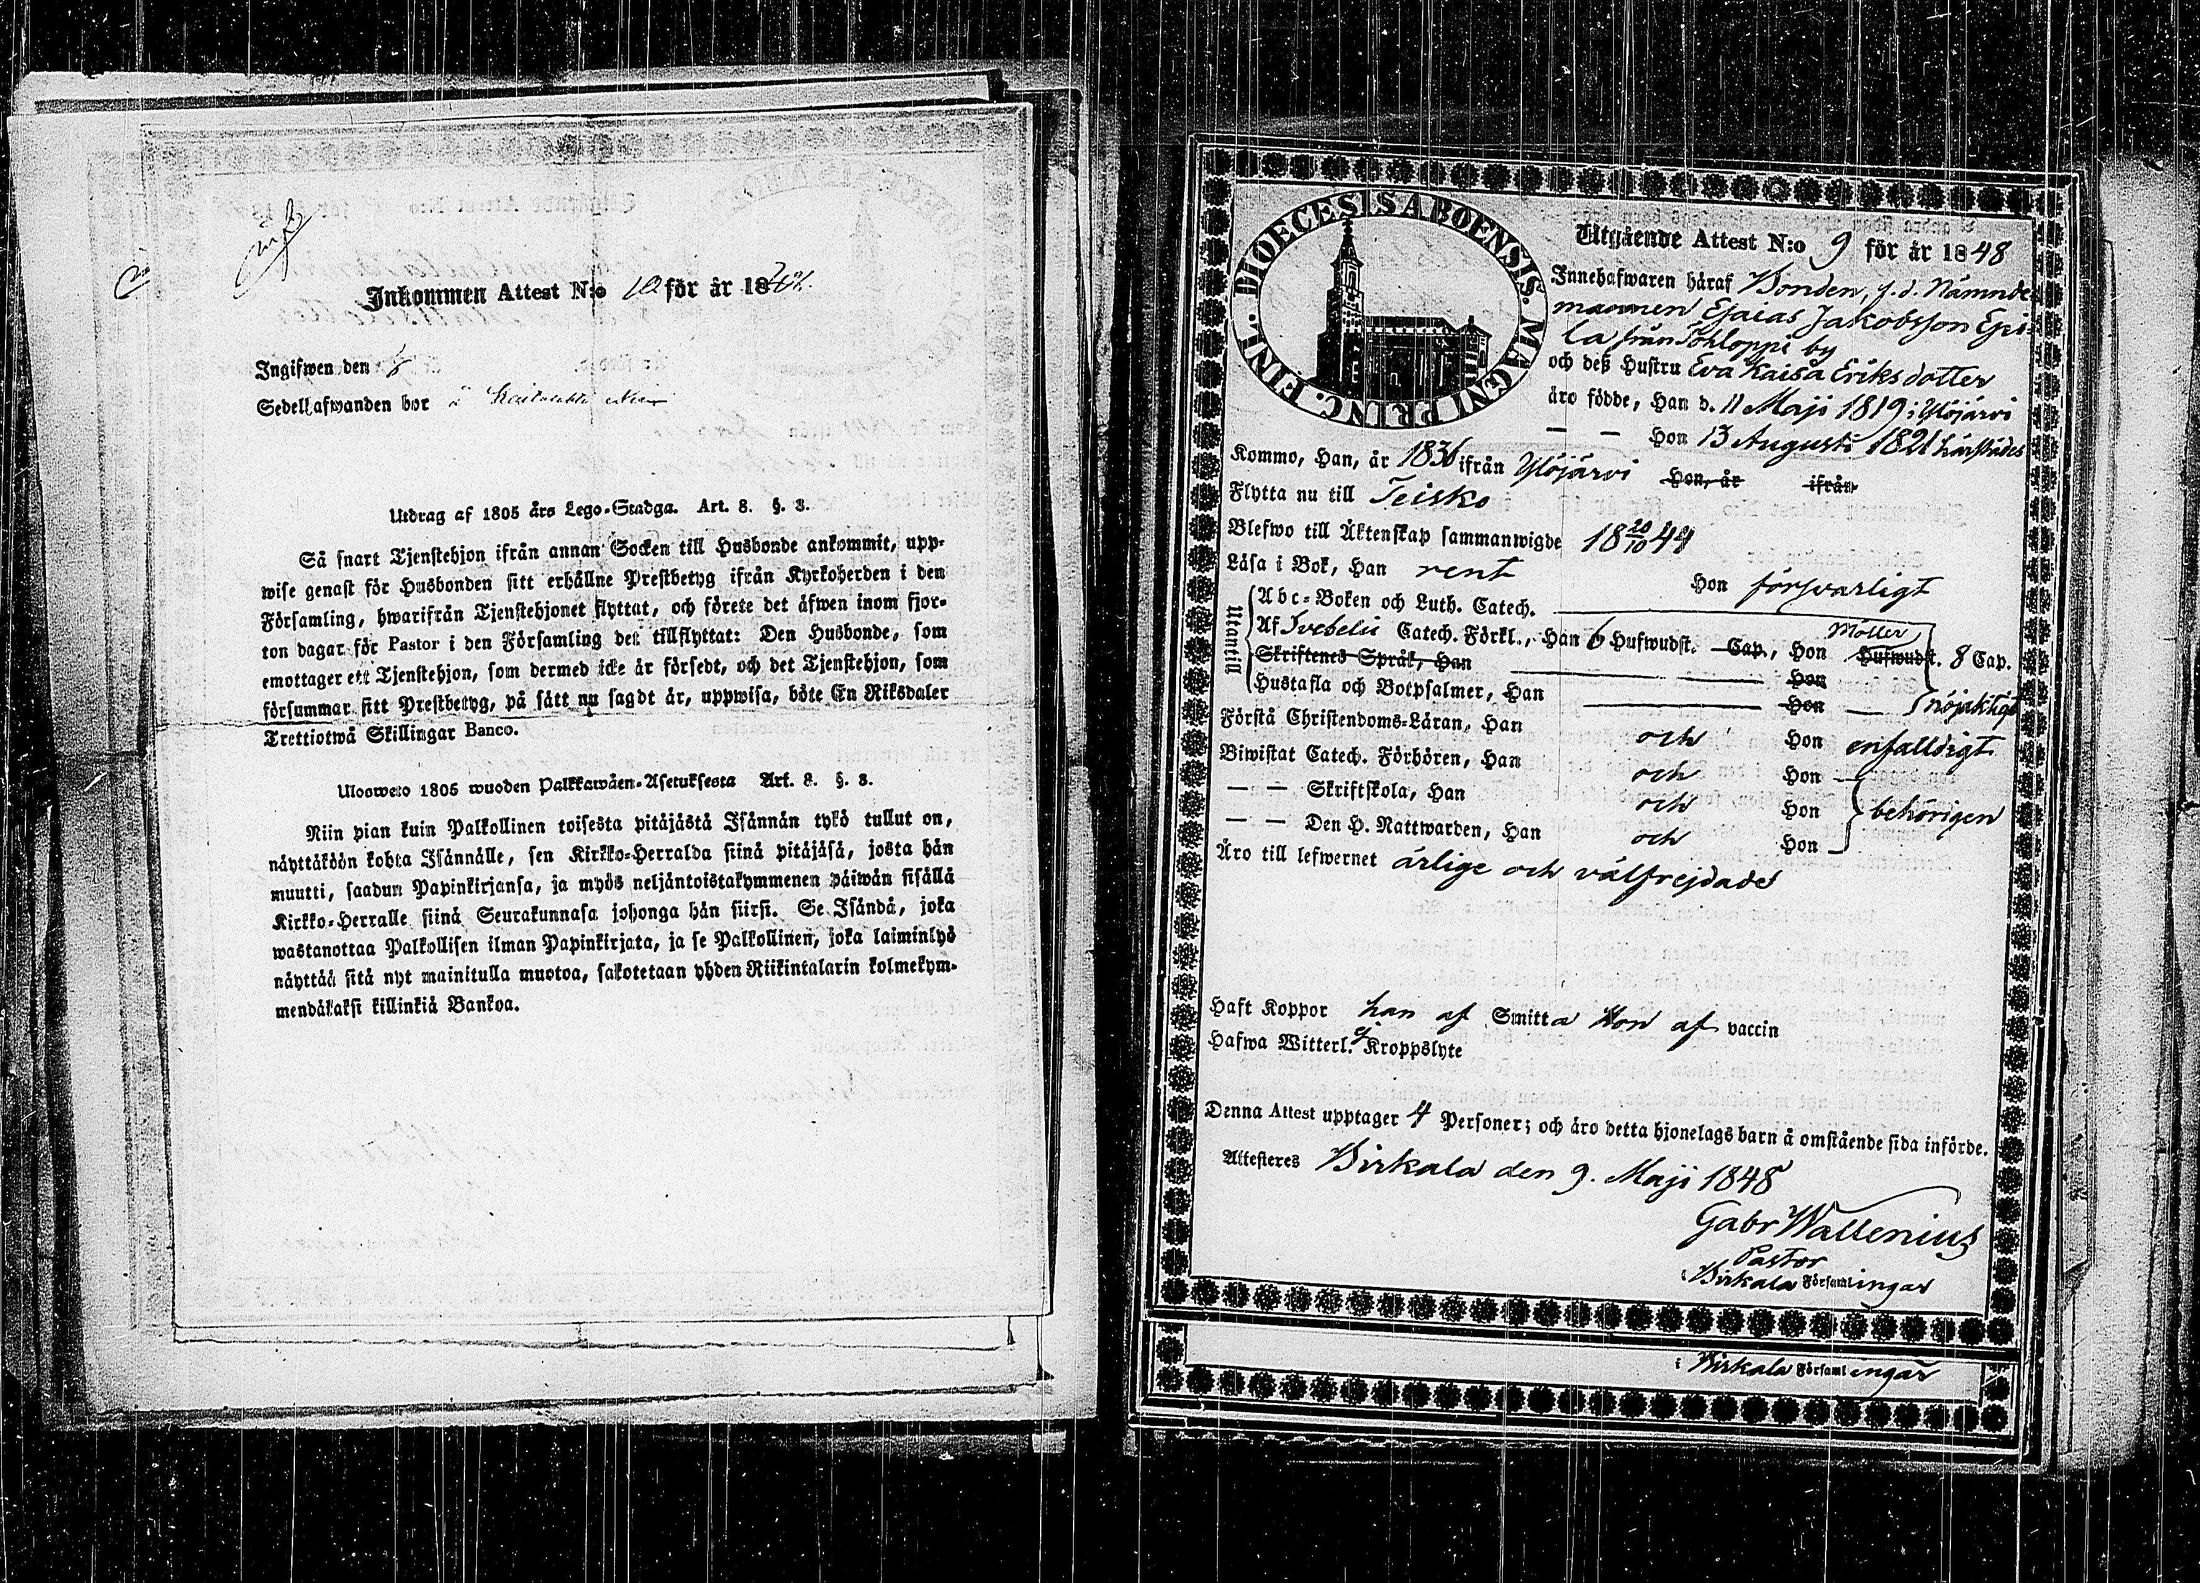 Inkommen Attest N:o 10 för år 18
Ingifwen den
Sedellafwanden bor å
Utdrag af 1805 års Lego-Stadga. Art. 8. §. 3.
Så snart Tjenstehjon ifrån annan Socken till Husbonde ankommit, upp-
wise genast för Husbonden sitt erhållne Prestbetyg ifrån Kyrkoherden i den
Församling, hwarifrån Tjenstehjonet flyttat, och förete det äfwen inom fjor-
ton dagar för Pastor i den Församling det tillflyttat: Den Husbonde, som
emottager ett Tjenstehjon, som dermed icke är försedt, och det Tjenstehjon, som
försummar sitt Prestbetyg, på sätt nu sagdt är, uppwisa, böte En Riksdaler
Trettiotwå Skillingar Banco.
Ulosweto 1805 wuoden Palkkawäen-Asetuksesta Art. 8. §. 3.
Niin pian kuin Palkollinen toisesta pitäjästä Isännän tykö tullut on,
näyttäköön kohta Isännälle, sen Kirkko-Herralda siinä pitäjäsä, josta hän
muutti, saadun Papinkirjansa, ja myös neljäntoistakymmenen päiwän sisällä
Kirkko-Herralle siinä Seurakunnasa johonga hän siirsi. Se Isändä, joka
wastanottaa Palkollisen ilman Papinkirjata, ja se Palkollinen, joka laiminlyö
näyttää sitä nyt mainitulla muotoa, sakotetaan yhden Riikintalarin kolmekym-
mendäkaksi killinkiä Bankoa.
DIOECESIS ABOENSIS. MAGNI PRINC. FINL.
Utgående Attest N:o 9 för år 1848
Innehafwaren häraf Bonden, f. d. Nämnde
mannen Esaias Jakobsson Epi-
la från Tohloppi by
och deß Hustru Eva Kaisa Eriksdotter
äro födde, Han d. 11 Maji 1819 i Ylöjärvi
— — Hon 13 Augusti 1821 härstädes
Kommo, Han, år 1836 ifrån Ylöjärvi Hon, år ifrån
Flytta nu till Teisko
Blefwo till Äktenskap sammanwigde 18 20/10 44
Läsa i Bok, Han rent Hon försvarligt
Utantill
Abc-Boken och Luth. Catech.
Af Svebelii Catech. Förkl., Han 6 Hufwudst. Cap., Hon Möller Hufwudst. 8 Cap.
Skriftenes Språk, Han Hon
Hustafla och Botpsalmer, Han Hon — nöjaktigt
Förstå Christendoms-Läran, Han och Hon enfalldigt
Biwistat Catech. Förhören, Han och Hon
— — Skriftskola, Han och Hon behörigen
— — Den H. Nattwarden, Han och Hon
Äro till lefwernet ärlige och välfrejdade
Haft Koppor han af Smitta Hon af vaccin
Hafwa Witterl. ej Kroppslyte
Denna Attest upptager 4 Personer; och äro detta hjonelags barn å omstående sida införde.
Attesteres Birkala den 9. Maji 1848
Gabr Wallenius
Pastor
i Birkala Församlingar
i Birkala Församlingar